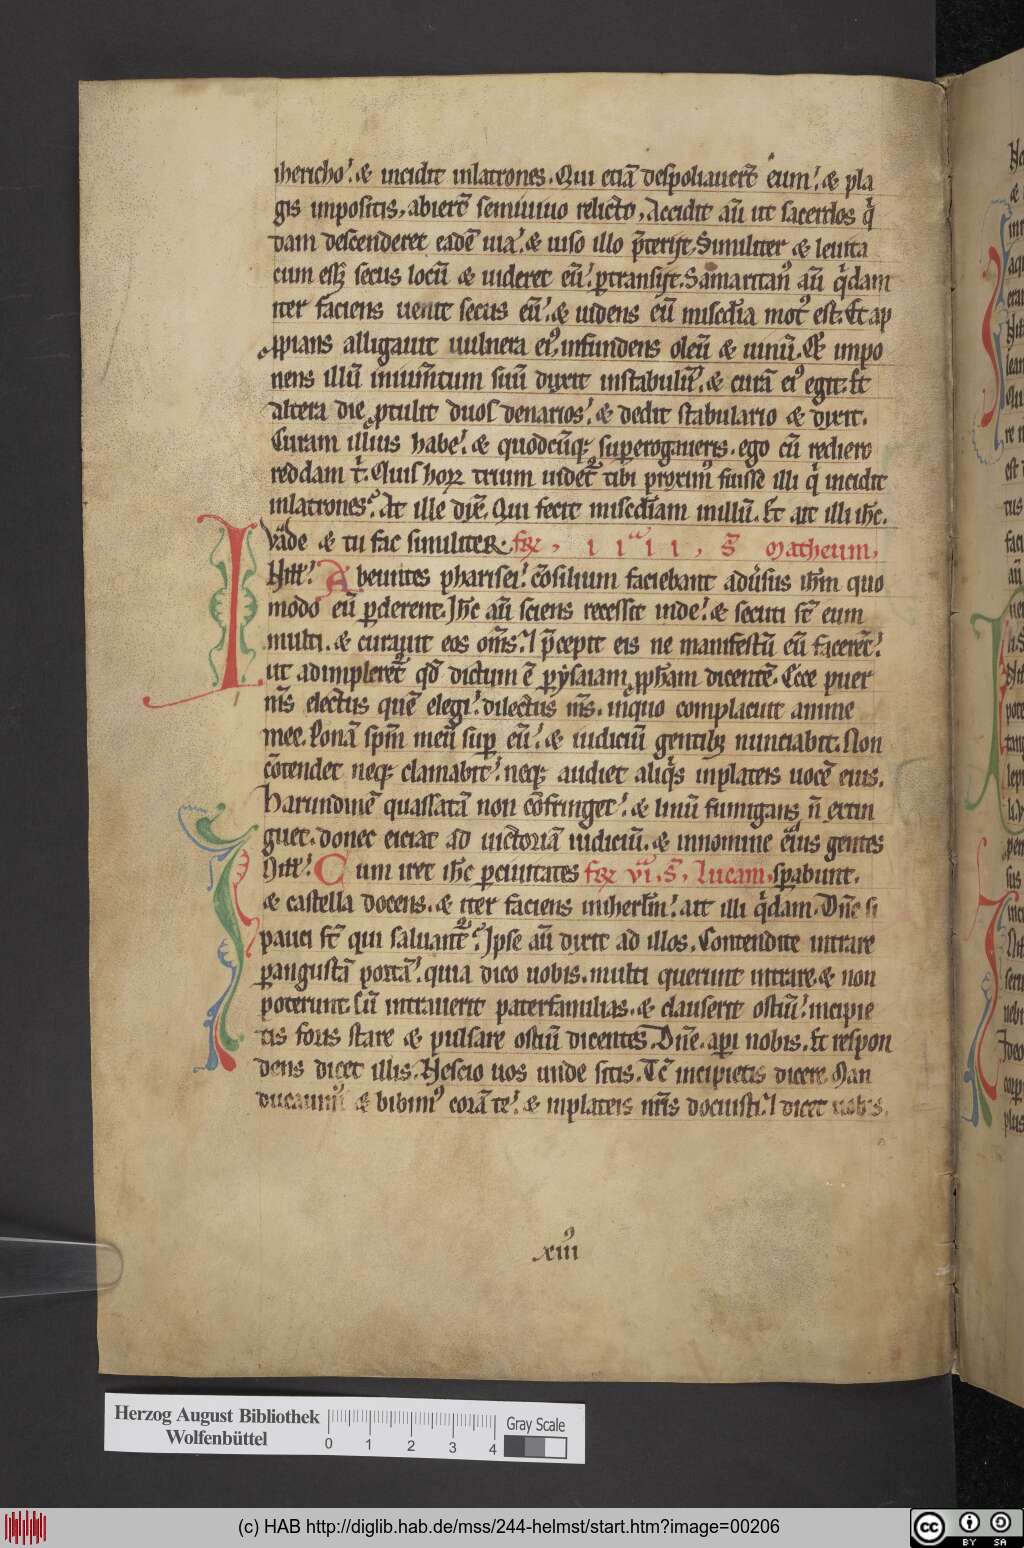 ihericho. & incidit inlatrones. Qui etiā despoliauer̄t eum. & pla
gis impositis, abier̄t semiuiuo relicto, Accidit aū ut sacerdos q̇
dam descenderet eadē uia. & uiso illo p̄terijt. Similiter & leuita
cum ess& secus locū & uideret eū. ꝑtransijt. Samaritanꝰ aū q̇dam
iter faciens uenit secus eū. & uidens eū misc̄dia motꝰ est. Et ap
ꝓpians alligauit uulnera eiꝰ, infundens oleū & uinū. Et impo
nens illū iniumtum suū duxit instabulū. & curā eiꝰ egit. Et
altera die ꝓtulit duos denarios. & dedit stabulario & dixit.
Curam illius habe. & quodcūq; supererogaueris. ego cū rediero
reddam t̄. Quis horꝝ trium uidet̄ tibi proximꝰ fuisse illi q̇ incidit
inlatrones. At ille dix̄. Qui fecit misc̄diam inillū. Et ait illi ihc̄.
Vade & tu fac similiter. fꝝ, iiiii, s̄ Matheum,
In ill. Abeuntes pharisei. cōsilium faciebant adūsus ihm̄ quo
modo eū ꝑderent. Ihc̄ aū sciens recessit inde. & secuti st̄ eum
multi. & curauit eos om̄s. I p̄cepit eis ne manifestū eū facerēt.
ut adimpleret̄ qd̄ dictum ē ꝑ ysaiam ꝓph̄am dicentē. Ecce puer
m̄s electus quē elegi. dilectus m̄s. inquo complacuit anime
mee. Ponā spm̄ meū sup eū. & iudiciū gentibꝫ nunciabit. Non
cōtendet neq; clamabit. neq; audiet aliq̇s inplateis uocē eius.
harundinē quassatā non cōfringet. & linū fumigans n̄ extin
guet. donec eiciat ad uictoriā iudiciū. & innomine eius gentes
In ill. Cum iret ihc̄ ꝑciuitates fꝝ vi, s̄, Lucam. sꝑabunt.
& castella docens. & iter faciens inihrl̄m. ait illi q̇dam. Dn̄e si
pauci st̄ qui saluant̄. Ipse aū dixit ad illos. Contendite intrare
ꝑangustā portā. quia dico uobis. multi querunt intrare & non
poterunt. Cū intrauerit paterfamilias. & clauserit ostiū. incipie
tis foris stare & pulsare ostiū dicentes. Dn̄e. apī nobis. Et respon
dens dicet illis. Nescio uos unde sitis. Tc̄ incipietis dicere. Man
ducauimꝰ & bibimꝰ corā te. & inplateis nr̄is docuisti. I dicet uobis.
xiiiꝰ
Herzog August Bibliothek
Wolfenbüttel
0 1 2 3 4
Gray Scale
(c) HAB http://diglib.hab.de/mss/244-helmst/start.htm?image=00206
cc BY SA